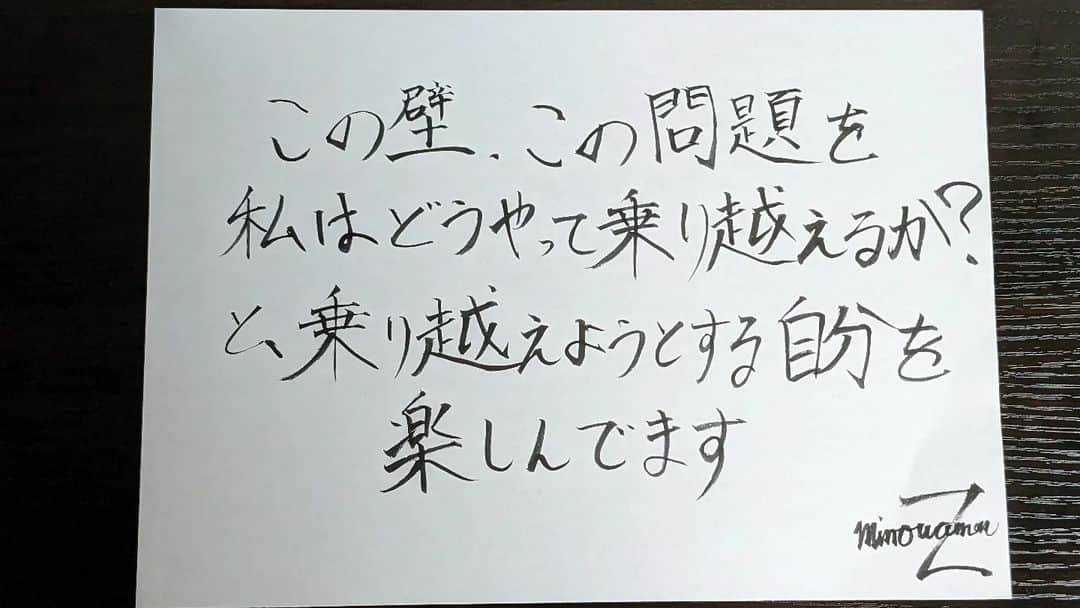 この壁、この問題を
私はどうやって乗り越えるか?
と、乗り越えようとする自分を
楽しんでます
minowaman Z